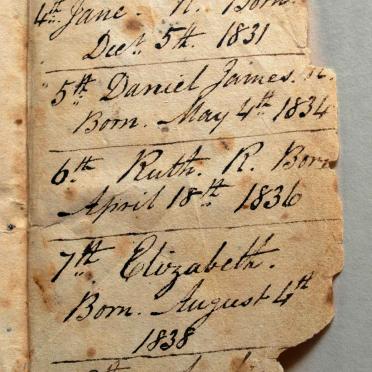 4th Jane. R. Born
Dect. 5th. 1831
5th Daniel James.
Born. May 4th 1834
6th Ruth. R. Born
April 18th 1836
7th Elizabeth.
Born. August 4th
1838